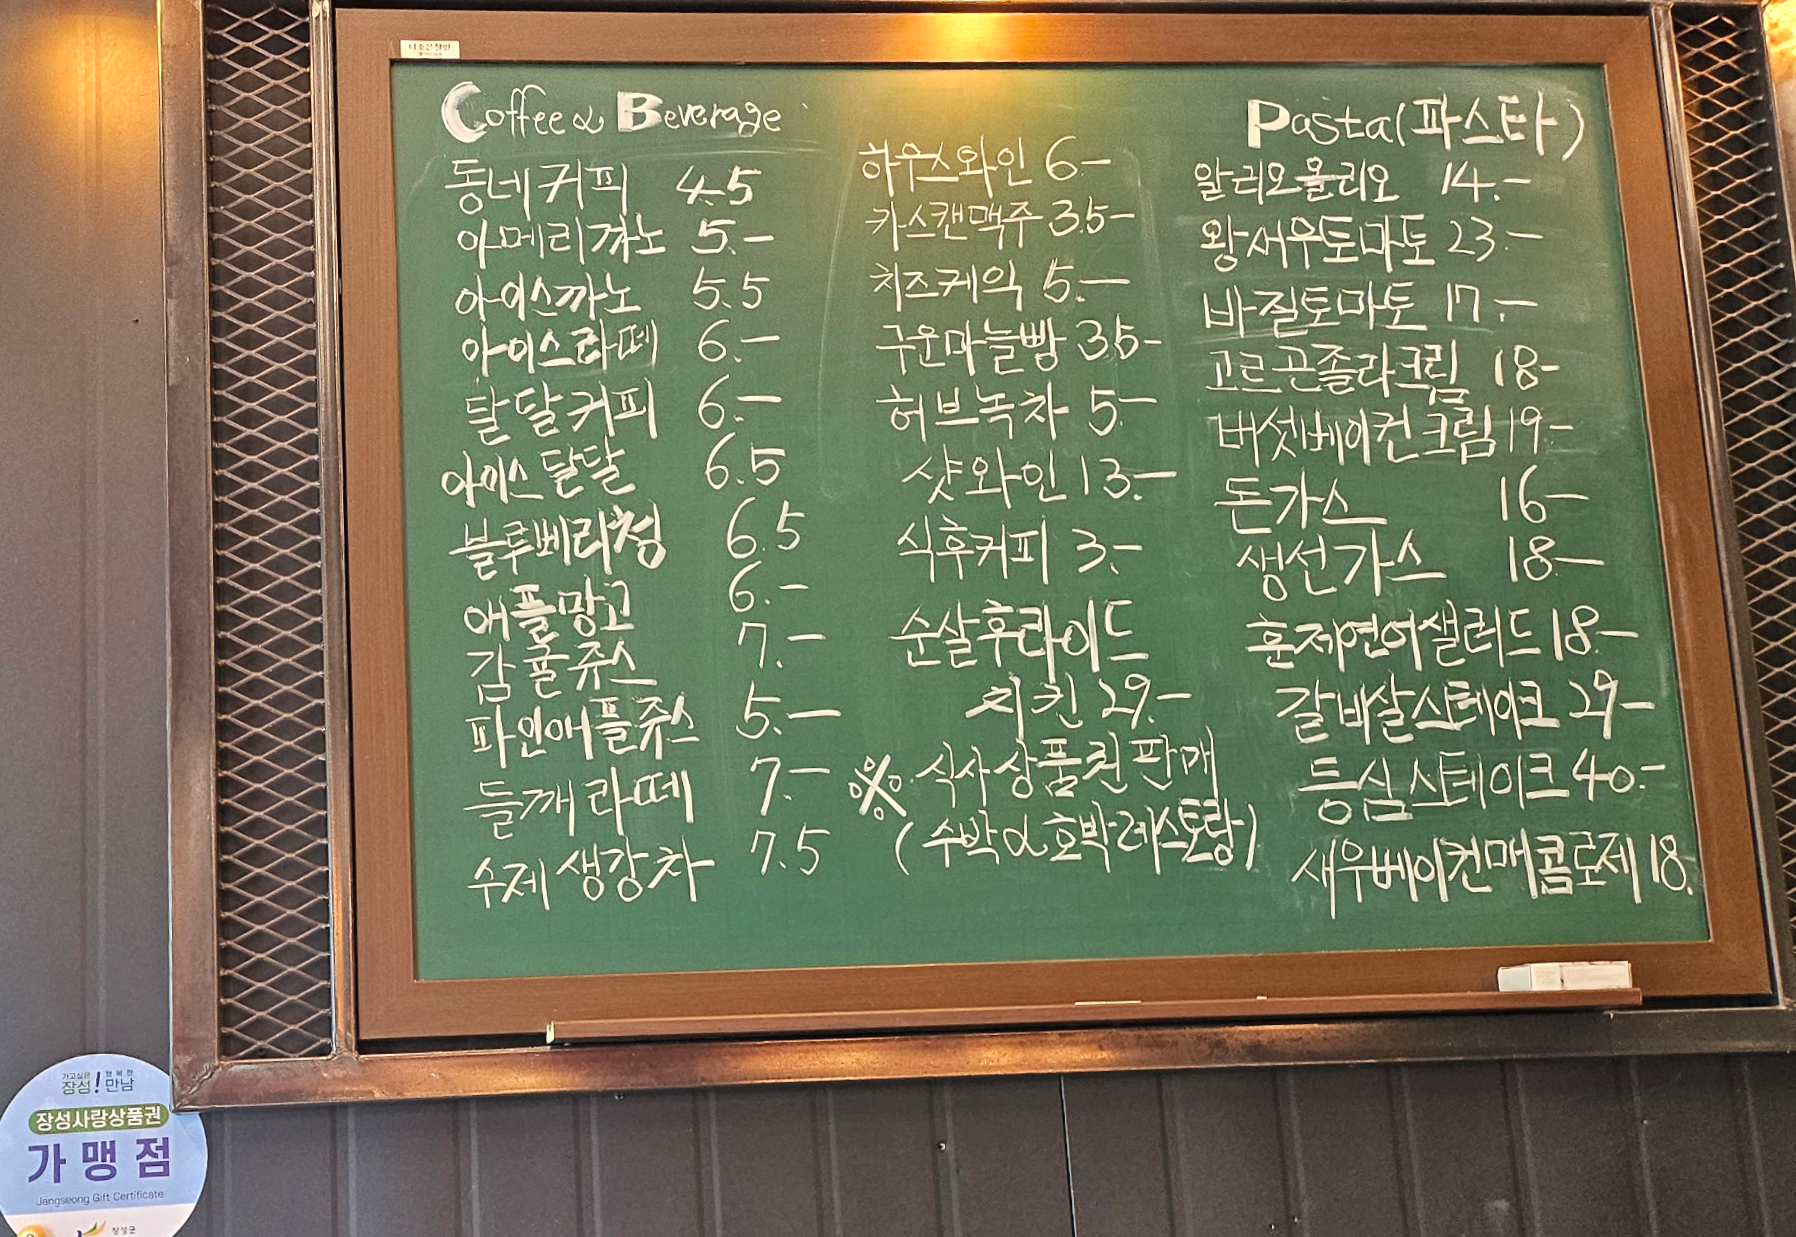 다호은칠판
Coffee & Beverage
동네커피 4.5
아메리까노 5.-
아이스까노 5.5
아이스라떼 6.-
달달커피 6.-
아이스달달 6.5
블루베리청 6.5
애플망고 6.-
감귤쥬스 7.-
파인애플쥬스 5.-
들깨라떼 7.-
수제생강차 7.5
하우스와인 6-
카스캔맥주 3.5-
치즈케익 5.-
구운마늘빵 3.5-
허브녹차 5.-
샷와인 13.-
식후커피 3.-
순살후라이드
치킨 29.-
※ 식사상품권판매
(수박&호박레스토랑)
Pasta(파스타)
알리오올리오 14.-
왕새우토마토 23.-
바질토마토 17.-
고르곤졸라크림 18-
버섯베이컨크림 19-
돈가스 16-
생선가스 18.-
훈제연어샐러드 18.-
갈바살스테이크 29-
등심스테이크 40.-
새우베이컨매콤로제 18.
가고싶은 행복한
장성!만남
장성사랑상품권
가맹점
Jangseong Gift Certificate
장성군